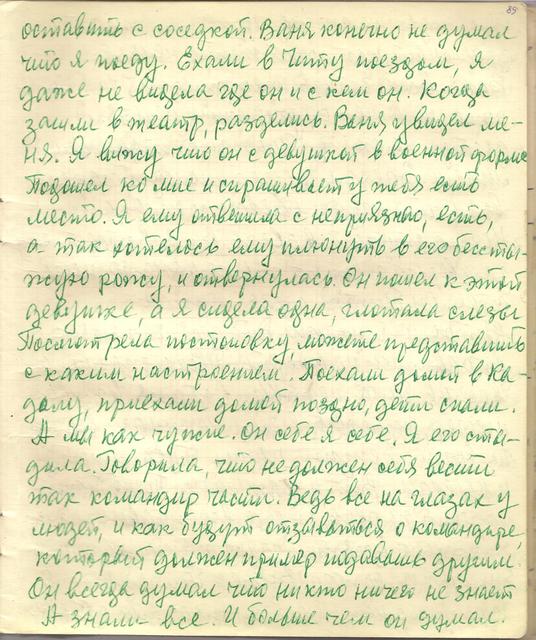 89
оставить с соседкой. Ваня конечно не думал
что я поеду. Ехали в Читу поездом, я
даже не видела где он и с кем он. Когда
зашли в театр, разделись. Ваня увидел ме-
ня. Я вижу что он с девушкой в военной форме
Подошел ко мне и спрашивает у тебя есть
место. Я ему ответила с неприязнью, есть,
а так хотелось ему плюнуть в его бессты-
жую рожу, и отвернулась. Он пошел к этой
девушке, а я сидела одна, глотала слезы
Посмотрела постоновку, можете представить
с каким настроением. Поехали домой в Ка-
далу, приехали домой поздно, дети спали.
А мы как чужие. Он себе я себе. Я его сты-
дила. Говорила, что не должен себя вести
так командир части. Ведь все на глазах у
людей, и как будут отзываться о командире,
который должен пример подавать другим.
Он всегда думал что никто ничего не знает
А знали все. И больше чем он думал.